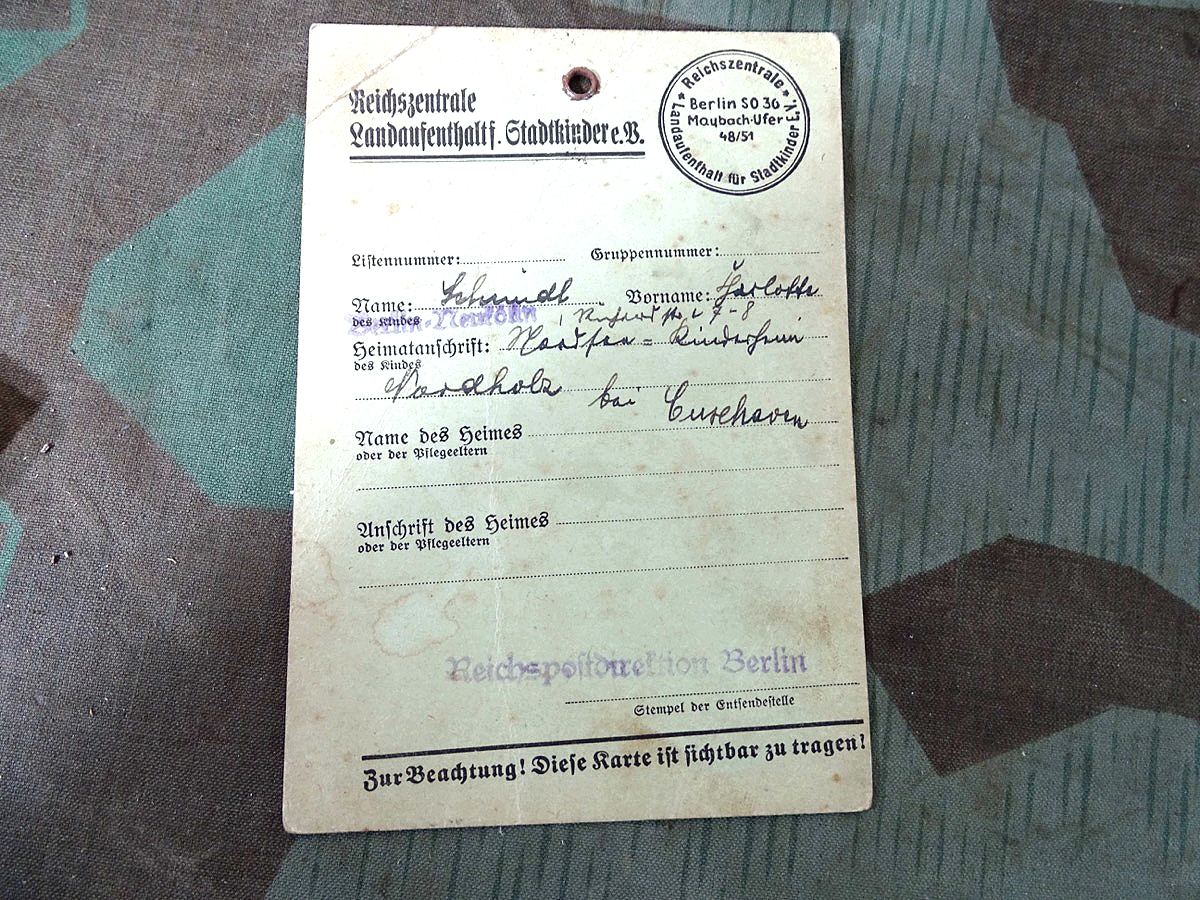 Reichszentrale
Landaufenthalt f. Stadtkinder e.V.
* Reichszentrale * Landaufenthalt für Stadtkinder E.V.
Berlin SO 36
Maybach-Ufer
48/51
Listennummer: Gruppennummer:
Name: Schmidt Vorname:
des Kindes
Berlin-Neukölln 7-8
Heimatanschrift: Nordsee = Kinderheim
des Kindes
Nordholz bei Cuxhaven
Name des Heimes
oder der Pflegeeltern
Anschrift des Heimes
oder der Pflegeeltern
Reichspostdirektion Berlin
Stempel der Entsendestelle
Zur Beachtung! Diese Karte ist sichtbar zu tragen!